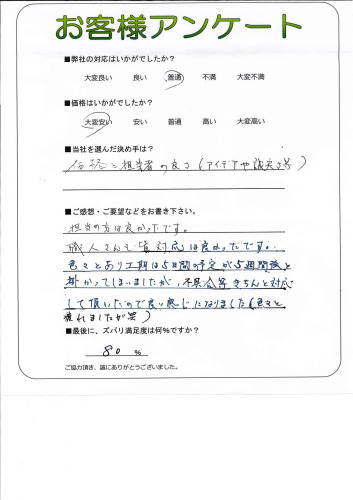 お客様アンケート
■弊社の対応はいかがでしたか？
大変良い 良い 普通 不満 大変不満
■価格はいかがでしたか？
大変安い 安い 普通 高い 大変高い
■当社を選んだ決め手は？
価格と担当者の良さ（アイデアや誠実さ等）
■ご感想・ご要望などをお書き下さい。
担当の方は良かったです。
職人さんも皆対応は良かったです。
色々とあり工期は5日間の予定が5週間後と
掛かってしまいましたが、不具合等きちんと対応
して頂いたので良い感じになりました（色々と
疲れましたが笑）
■最後に、ズバリ満足度は何％ですか？
80 ％
ご協力頂き、誠にありがとうございました。